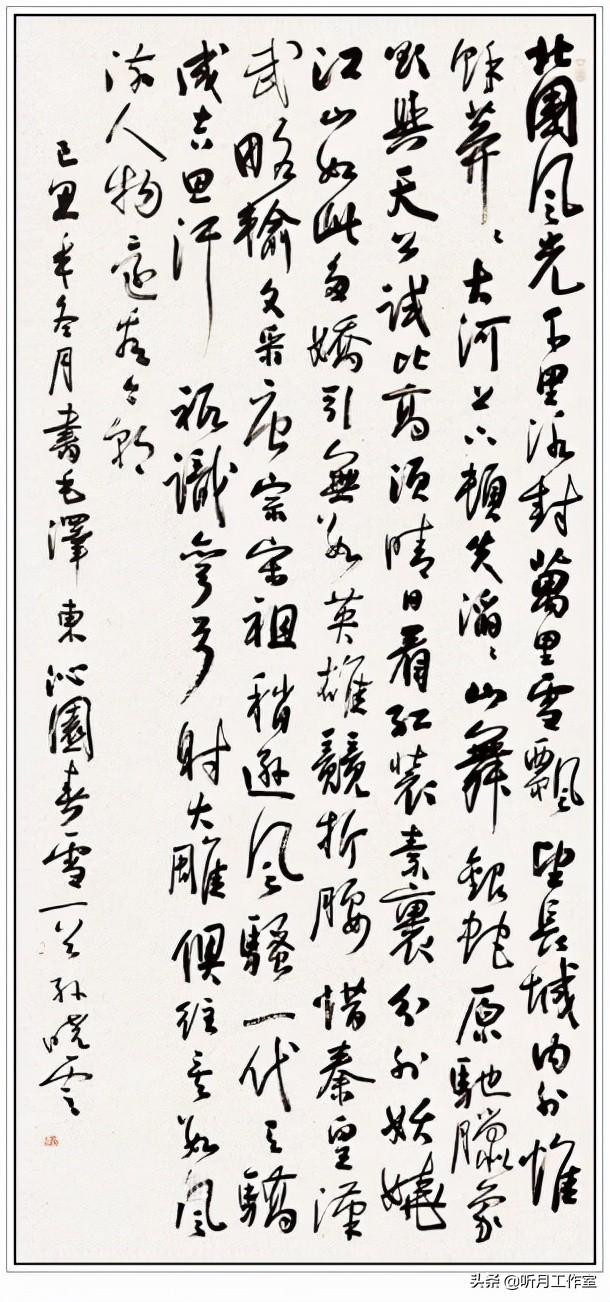 北國風光千里冰封萬里雪飄望長城內外惟
餘莽〻大河上下頓失滔〻山舞銀蛇原馳臘象
欲與天公試比高須晴日看紅裝素裹分外妖嬈
江山如此多嬌引無數英雄競折腰惜秦皇漢
武略輸文采唐宗宋祖稍遜風騷一代天驕
成吉思汗祇識彎弓射大雕俱往矣數風
流人物還看今朝
己丑年冬月書毛澤東沁園春雪一首孫曉雲
头条 @听月工作室